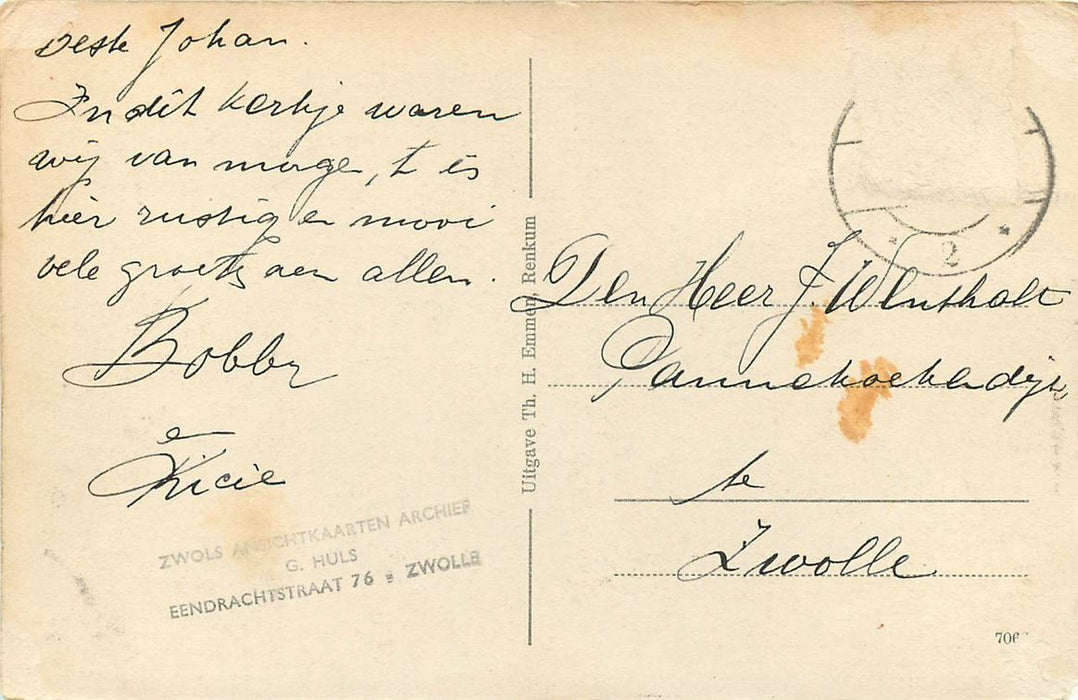 Beste Johan.
In dit kerkje waren
wij van morge, t is
hier rustig en mooi
vele groets aen allen.
Bobby
en
Kicie
ZWOLS ANSICHTKAARTEN ARCHIEF
G. HULS
EENDRACHTSTRAAT 76 - ZWOLLE
Uitgave Th. H. Emmen, Renkum
2
Den Heer J. Wentholt
Pannekoekendijk
te
Zwolle
706